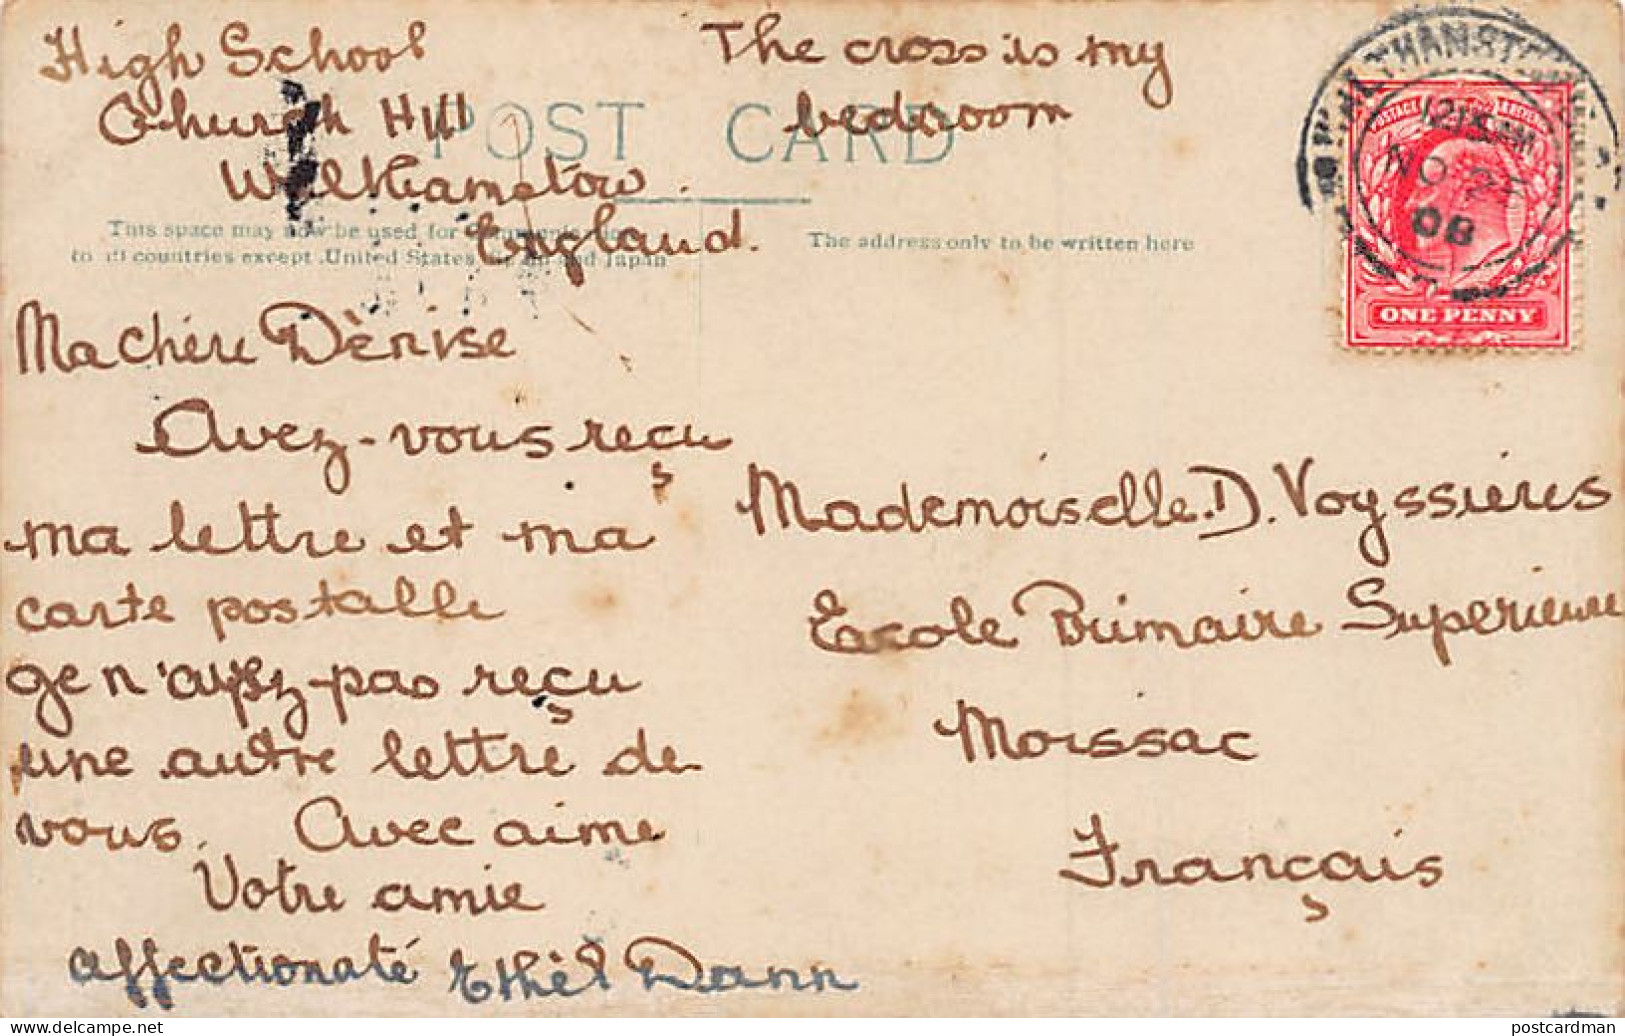 High School
Church Hill
Walthamstow.
England.
The cross is my
bedroom
POST CARD
This space may now be used for communications
to all countries except United States, Spain and Japan
The address only to be written here
WALTHAMSTOW
12.15 AM
NO 24
08
POSTAGE
ONE PENNY
Ma chère Dènise
Avez-vous reçu
ma lettre et ma
carte postalle
ge n'ayez-pas reçu
une autre lettre de
vous. Avec aime
Votre amie
affectionaté Ethel Dann
Mademoiselle. D. Voyssières
Ecole Primaire Superieure
Moissac
Français
postcardman